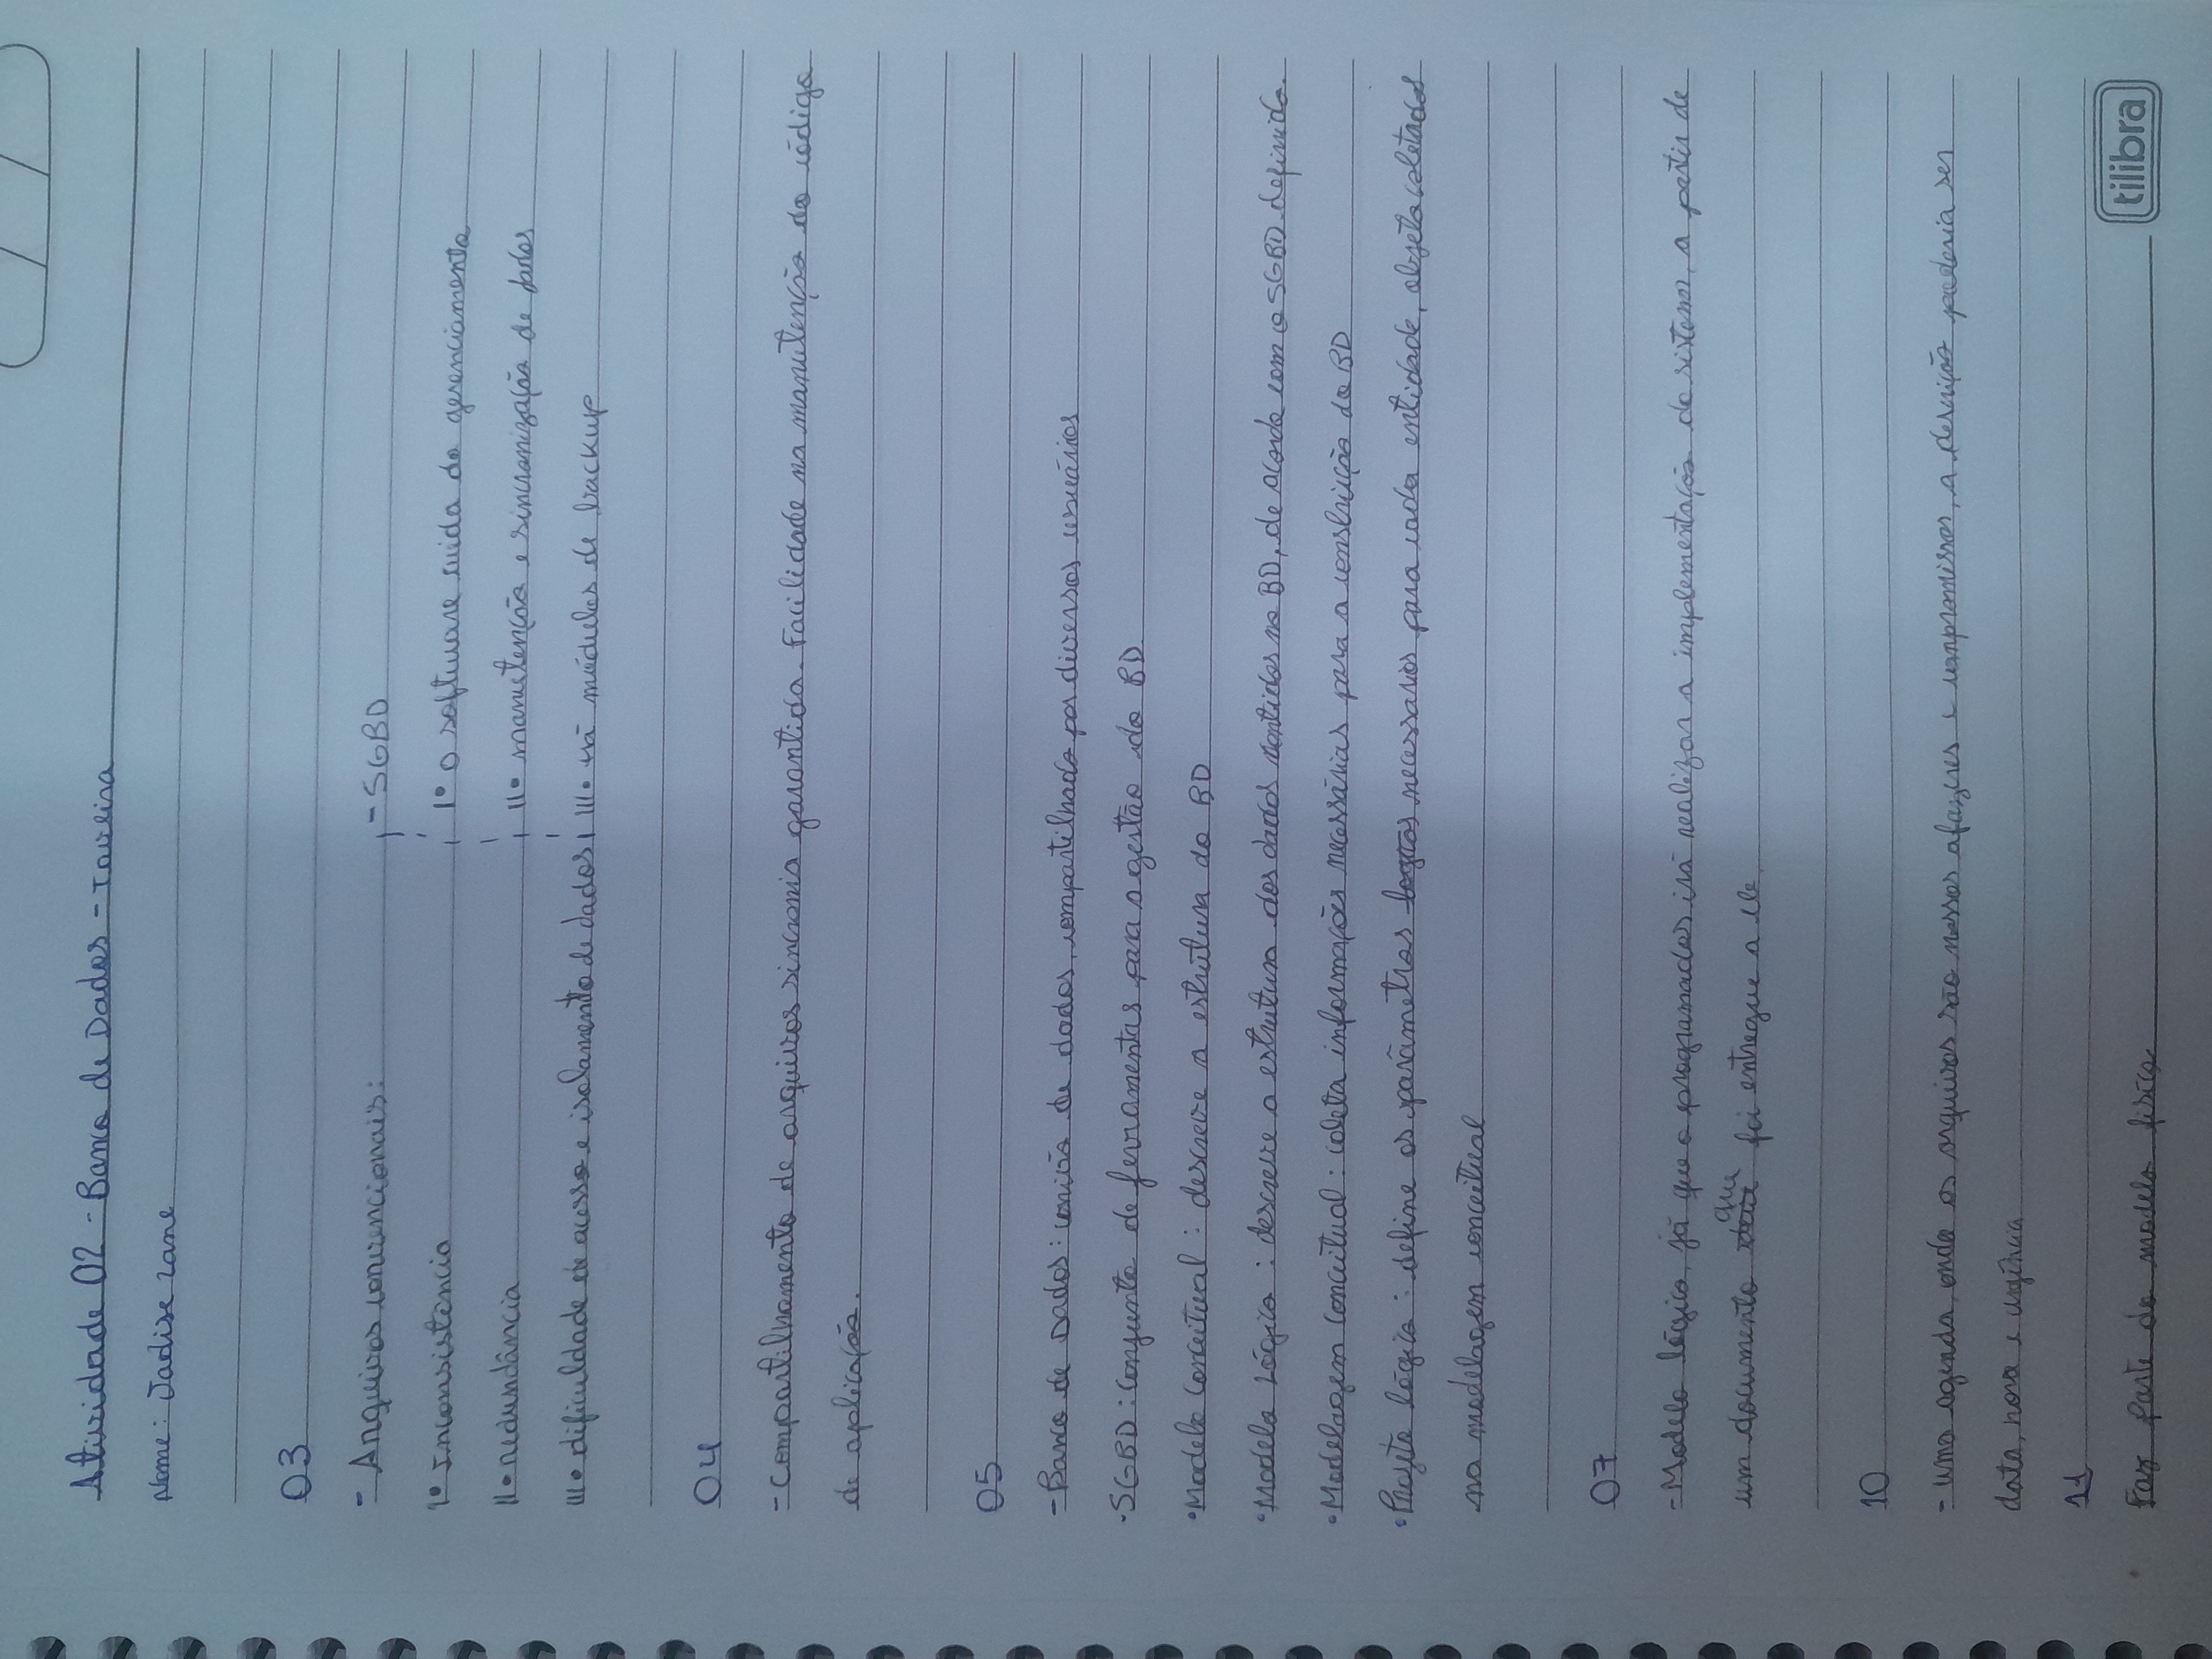 Atividade 02 - Banco de Dados - Taveira
Nome: Jadise zane
03
- Arquivos convencionais:
- SGBD
1º Inconsistência
1º o software cuida do gerenciamento
11º redundância
11º manutenção e sincronização de dados
111º dificuldade de acesso e isolamento de dados
111º há módulos de backup
04
- Compartilhamento de arquivos sincronia garantida. Facilidade na manutenção do código
de aplicação.
05
- Banco de Dados: união de dados, compartilhado por diversos usuários
·SGBD: Conjunto de ferramentas para a gestão do BD
·Modelo Conceitual: descreve a estrutura do BD
·Modelo Lógico: descreve a estrutura dos dados contidos no BD, de acordo com o SGBD definido.
·Modelagem Conceitual: coleta informações necessárias para a construção do BD
·Projeto lógico: define os parâmetros necessarios para cada entidade, objeto coletados
na modelagem conceitual
07
- Modelo lógico, já que o programador irá realizar a implementação do sistema, a partir de
um documento que foi entregue a ele.
10
- uma agenda, onde os arquivos são nossos afazeres e compromissos, a descrição poderia ser
data, hora e urgência
11
Faz parte do modelo físico
tilibra